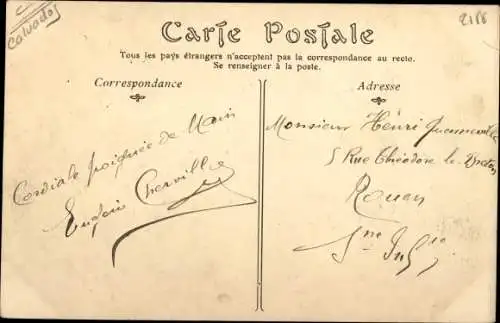 Calvados
2186
Carte Postale
Tous les pays étrangers n'acceptent pas la correspondance au recto.
Se renseigner à la poste.
Correspondance
Cordiale poignée de Main
Eugène Cherville
Adresse
Monsieur Henri
5 Rue Théodore le Breton
Rouen
Sne Infre